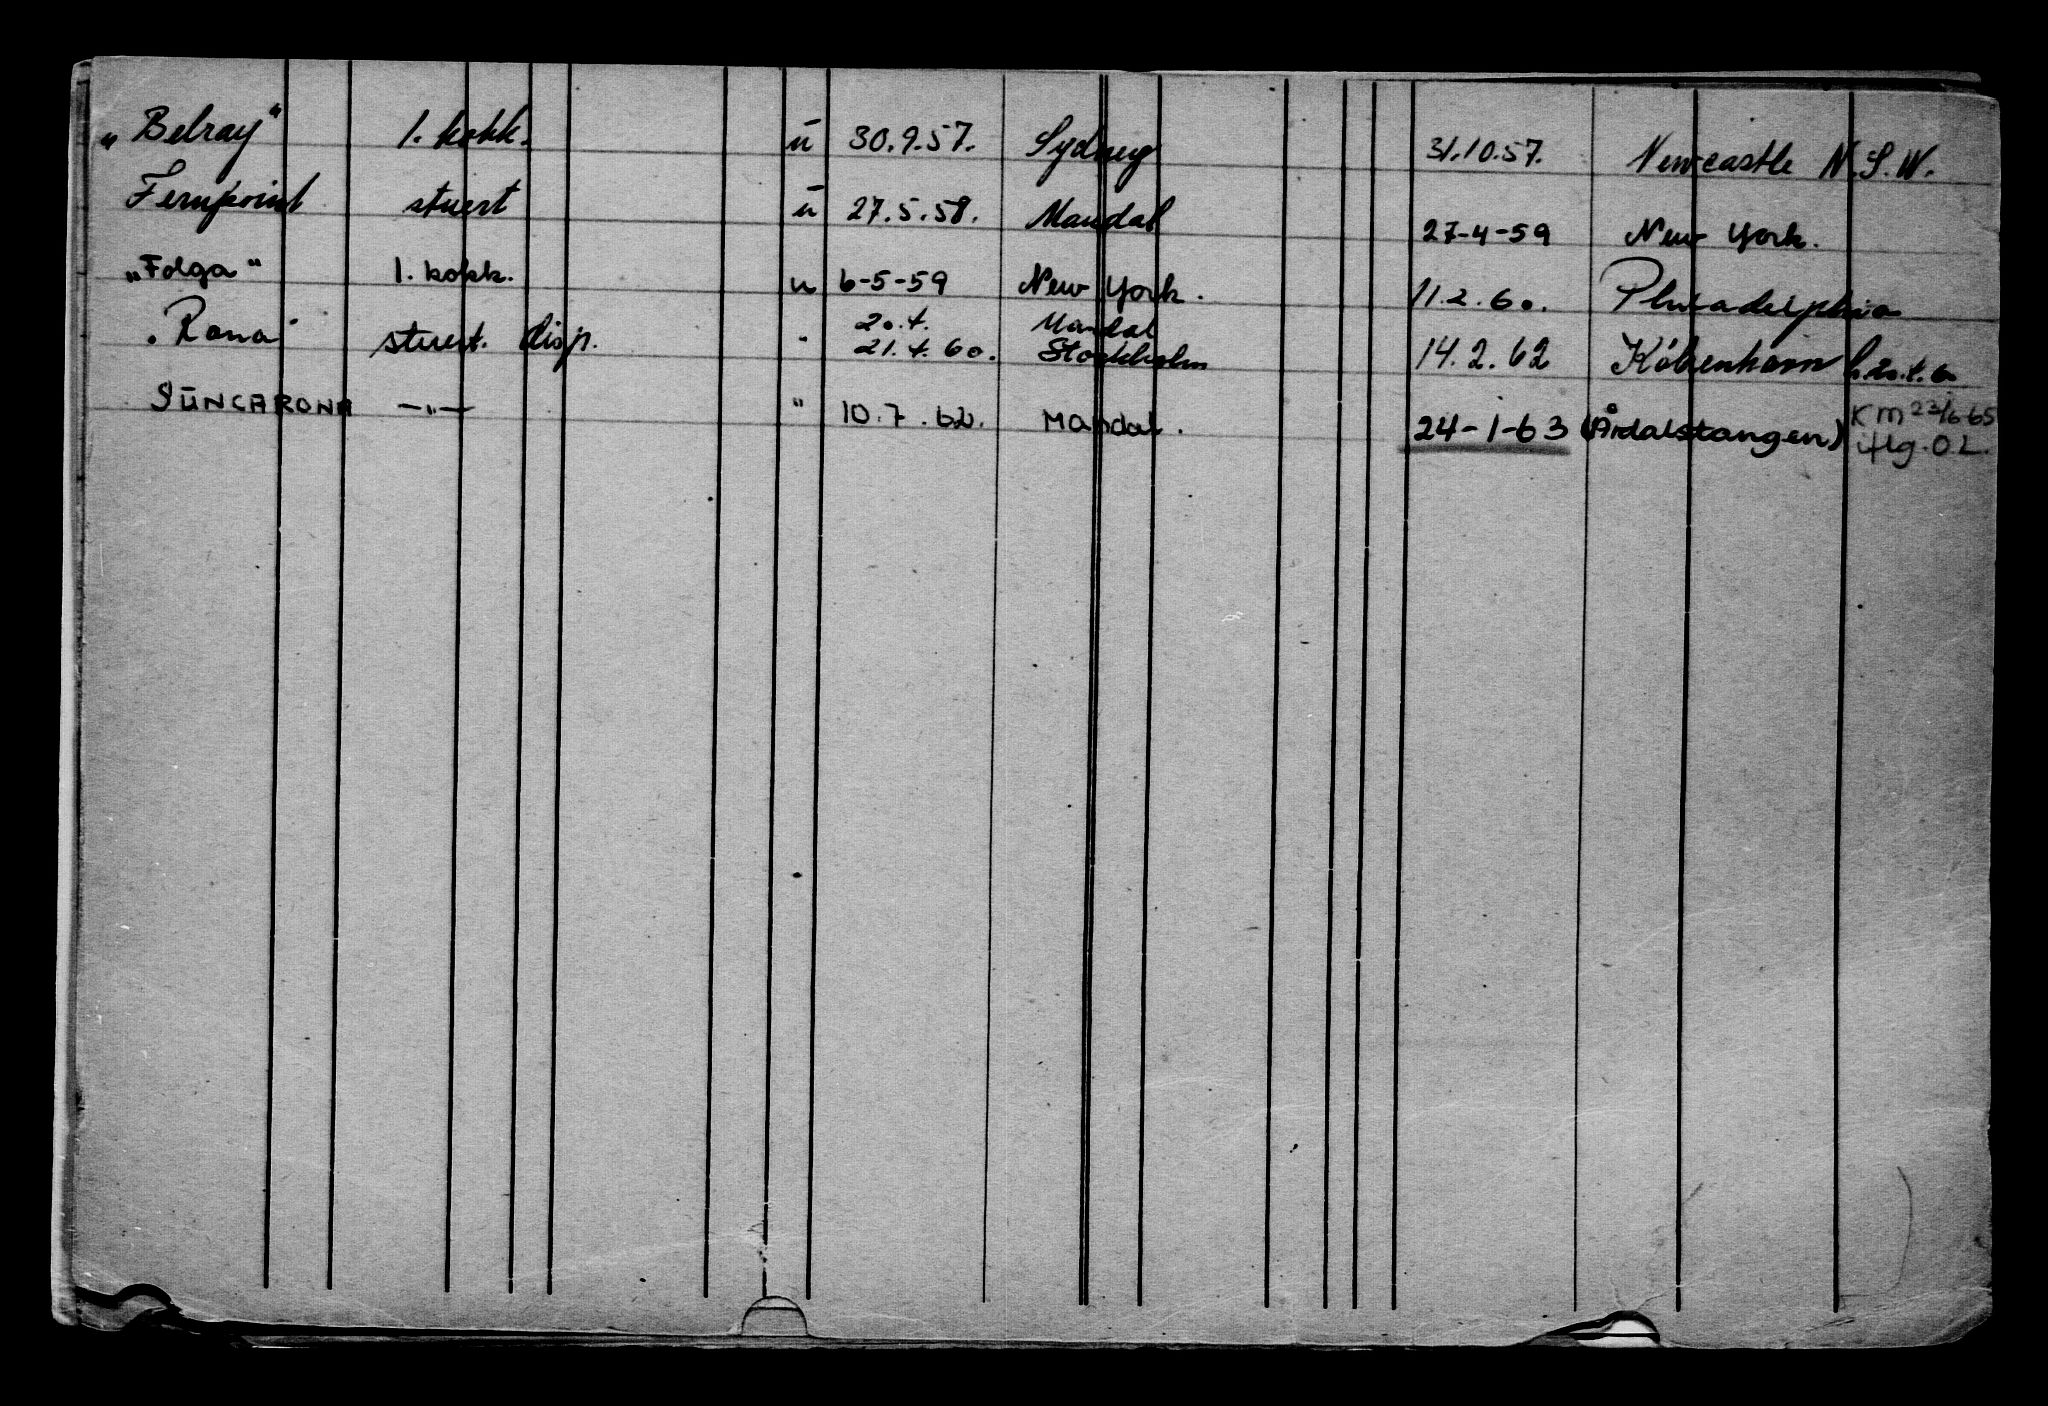 "Belray" 1. kokk. ū 30.9.57. Sydney 31.10.57. Newcastle N.S.W.
Fernpoint stuert ū 27.5.58. Mandal 27-4-59 New York.
"Folga" 1. kokk. u 6-5-59 New York. 11.2.60. Philadelphia
20.4. Mandal
"Rona" stuert. disp. " 21.4.60. Stockholm 14.2.62 København
SUNCARONA —"— " 10.7.62. Mandal. 24-1-63 (Årdalstangen) KM 23/6-65
iflg. O.L.